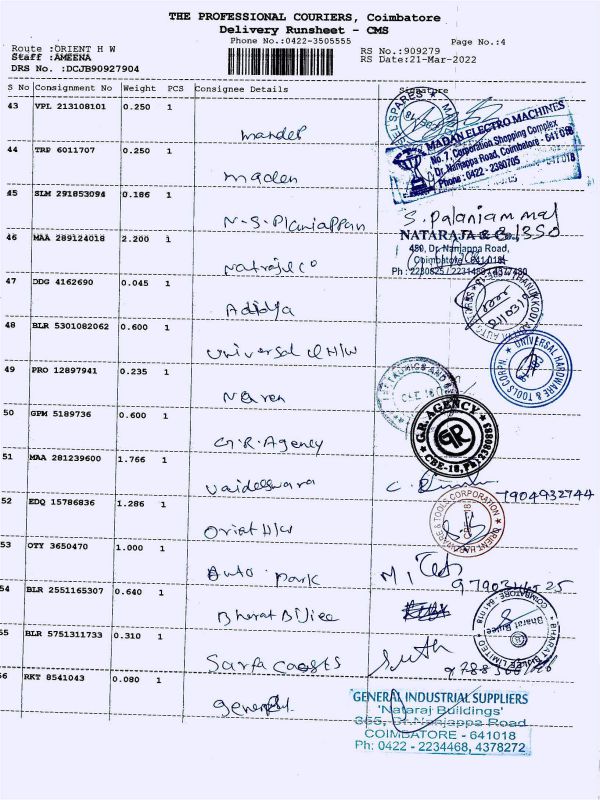 THE PROFESSIONAL COURIERS, Coimbatore
Delivery Runsheet - CMS
Phone No.:0422-3505555
Page No.:4
Route :ORIENT H W
RS No.:909279
Staff :AMEENA
RS Date:21-Mar-2022
DRS No. :DCJB90927904
S No Consignment No Weight PCS Consignee Details Signature
43 VPL 213108101 0.250 1
MADAN ELECTRO MACHINES
No. 7, Corporation Shopping Complex
Dr. Nanjappa Road, Coimbatore - 641 018
Phone : 0422 - 2380705
44 TRP 6011707 0.250 1
maden
45 SLM 291853094 0.186 1
N.S. Planiappan
S. palaniammal
46 MAA 289124018 2.200 1
NATARAJA & Co.
450, Dr. Nanjappa Road,
Coimbatore - 641 018
47 DDG 4162690 0.045 1
48 BLR 5301082062 0.600 1
universal H/W
UNIVERSAL HARDWARE & TOOLS CORPN.
49 PRO 12897941 0.235 1
Naren
50 GPM 5189736 0.600 1
G.R. Agency
G.R. AGENCY
GR
51 MAA 281239600 1.766 1
vaideswara
7904932744
52 EDQ 15786836 1.286 1
Orient H/W
ORIENT HARDWARE & TOOLS CORPORATION
53 OTY 3650470 1.000 1
Auto park
54 BLR 2551165307 0.640 1
Bharat Bijlee
BHARAT BIJLEE LIMITED
COIMBATORE - 641 018
Bharat Bijlee
55 BLR 5751311733 0.310 1
56 RKT 8541043 0.080 1
general
GENERAL INDUSTRIAL SUPPLIERS
'Nataraj Buildings'
365, Dr. Nanjappa Road
COIMBATORE - 641018
Ph: 0422 - 2234468, 4378272